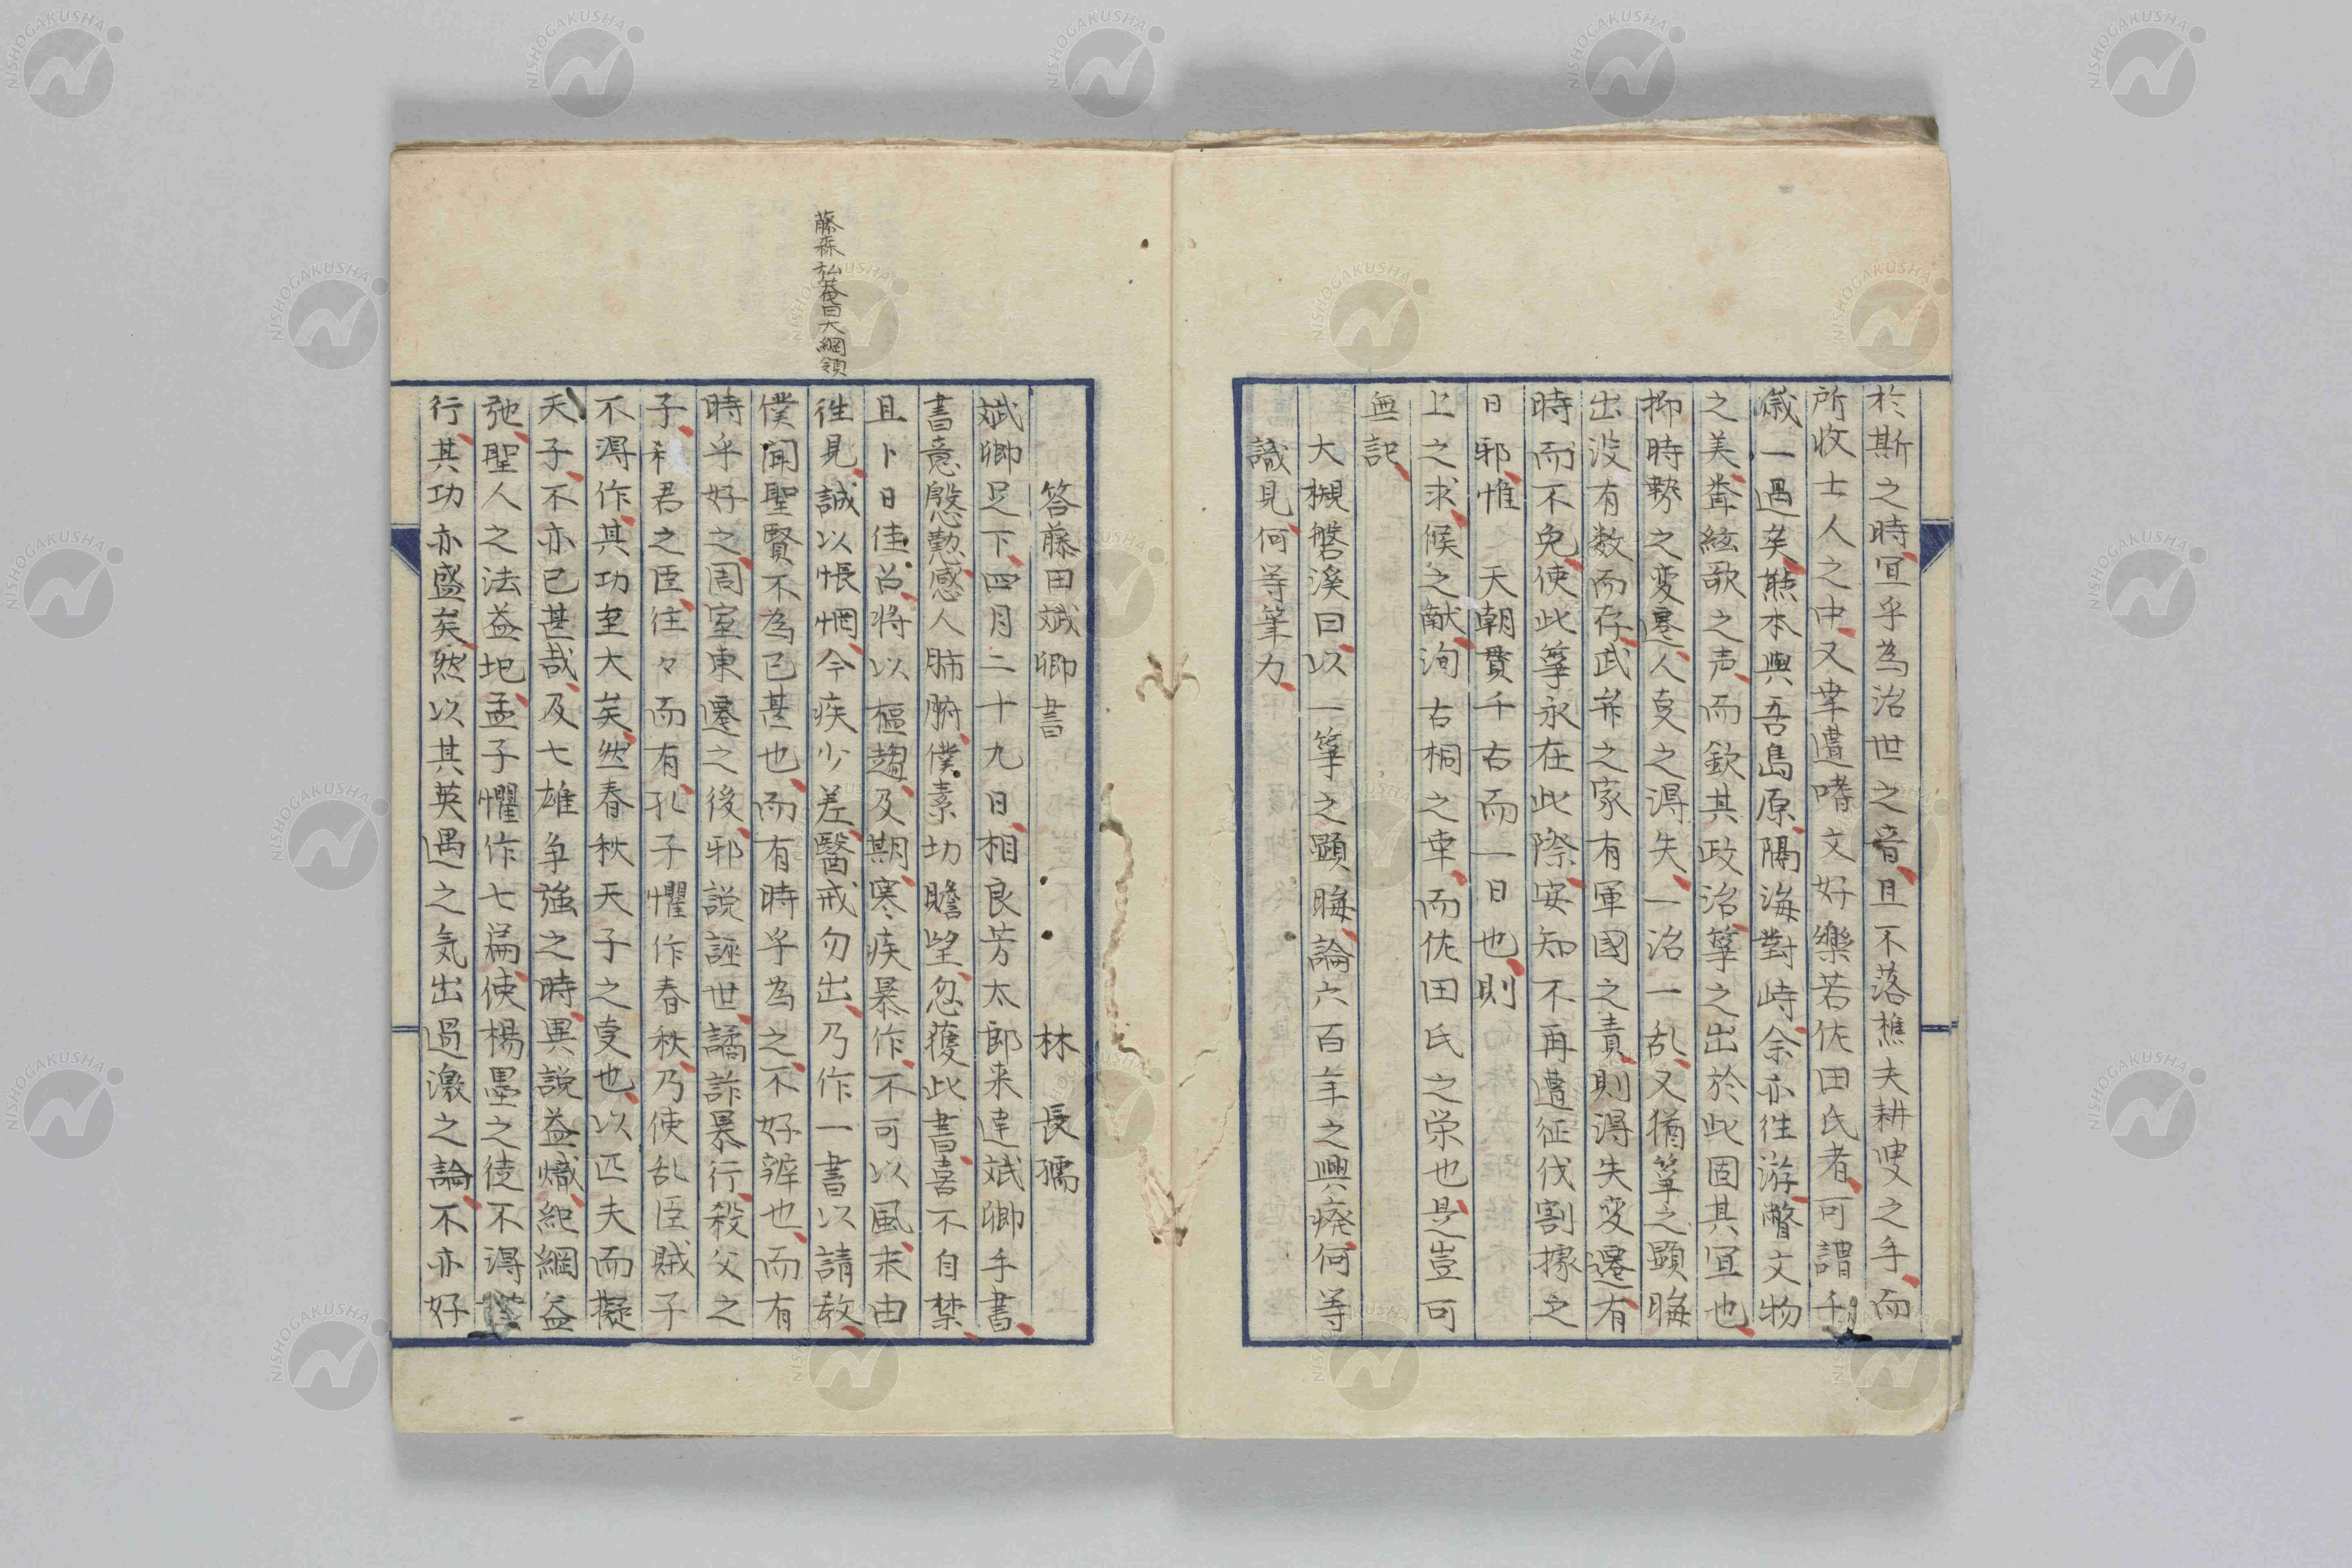 於斯之時宜乎為治世之音且不落樵夫耕叟之手而
所收士人之中又幸遭嗜文好樂若佐田氏者可謂千
歳一遇矣熊本與吾島原隔海對峙余亦往游瞥文物
之美聋絃歌之声而欽其政治箏之出於此固其宜也
抑時勢之変遷人叓之得失一治一乱又猶箏之顕晦
出没有数而存武弁之家有軍國之責則得失変遷有
時而不免使此箏永在此際安知不再遭征伐割據之
日邪惟 天朝貫千古而一日也則
上之求候之献洵古桐之幸而佐田氏之栄也是豈可
無記
大槻磐溪曰以一箏之顕晦論六百年之興廃何等
識見何等筆力
答藤田斌卿書 林長孺
斌卿足下四月二十九日相良芳太郎来達斌卿手書
書意慇懃感人肺腑僕素切瞻望忽獲此書喜不自禁
且卜日佳召将以樞趨及期寒疾暴作不可以風末由
徃見誠以悵惘今疾少差醫戒勿出乃作一書以請教
藤森弘菴曰大綱領
僕聞聖賢不為已甚也而有時乎為之不好辨也而有
時乎好之周室東遷之後邪説誣世譎詐暴行殺父之
子 君之臣往々而有孔子懼作春秋乃使乱臣賊子
不得作其功至大矣然春秋天子之叓也以匹夫而擬
天子不亦已甚哉及七雄争強之時異説益熾紀綱益
弛聖人之法益圮孟子懼作七扁使楊墨之徒不得
行其功亦盛矣然以其英邁之気出過激之論不亦好
NISHOGAKUSHA